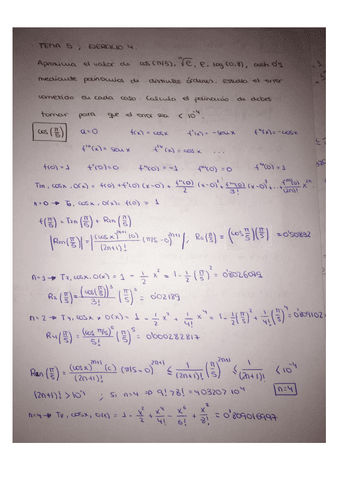 TEMA 5 ; EJERCICIO 4.
Aproxima el valor de cos(π/5), √e, e, log(0,8), 0'1
mediante polinomios de distintos órdenes. Estudia el error
cometido en cada caso. Calcula el polinomio de debes
tomar para que el error sea < 10⁻⁴
cos(π/5) a=0 f(x) = cosx f'(x) = -senx f''(x) = -cosx
f'''(x) = senx f''''(x) = cosx ...
f(0)=1 f'(0)=0 f''(0) = -1 f'''(0) = 0 f''''(0) = 1
f(0)+f'(0)(x-0)+ f''(0)/2 (x-0)²+ f'''(0)/3! (x-0)³...
n=0 → T₀, cosx, 0(x) = f(0) = 1
f(π/5) = T2n(π/5) + R2n(π/5)
|R2n(π/5)| = |(cosx)²ⁿ⁺¹(c)/(2n+1)! (π/5-0)²ⁿ⁺¹| ; R₀(π/5) =
n=1 → T₂, cosx, 0(x) = 1 - 1/2 x² = 1 - 1/2 (π/5)² = 0'8026079
R₂(π/5) = (cos(π/5))³/3! (π/5)³ = 0'02189
n=2 → T₄, cosx, 0(x) = 1 - 1/2 x² + 1/4! x⁴ = 1 - 1/2 (π/5)² + 1/4! (π/5)⁴ = 0'809102
R₄(π/5) = (cos π/5)⁵/5! (π/5)⁵ = 0'000282817
R2n(π/5) = (cosx)²ⁿ⁺¹(c)/(2n+1)! (π/5-0)²ⁿ⁺¹ ≤ 1/(2n+1)! (π/5)²ⁿ⁺¹ ≤ 1/(2n+1)! < 10⁻⁴
(2n+1)! > 10⁴ ; Si n=4 → 9! > 8! = 40320 > 10⁴ n=4
n=4 → Tx, cosx, 0(x) = 1 - x²/2 + x⁴/4! - x⁶/6! + x⁸/8! = 0'809016997